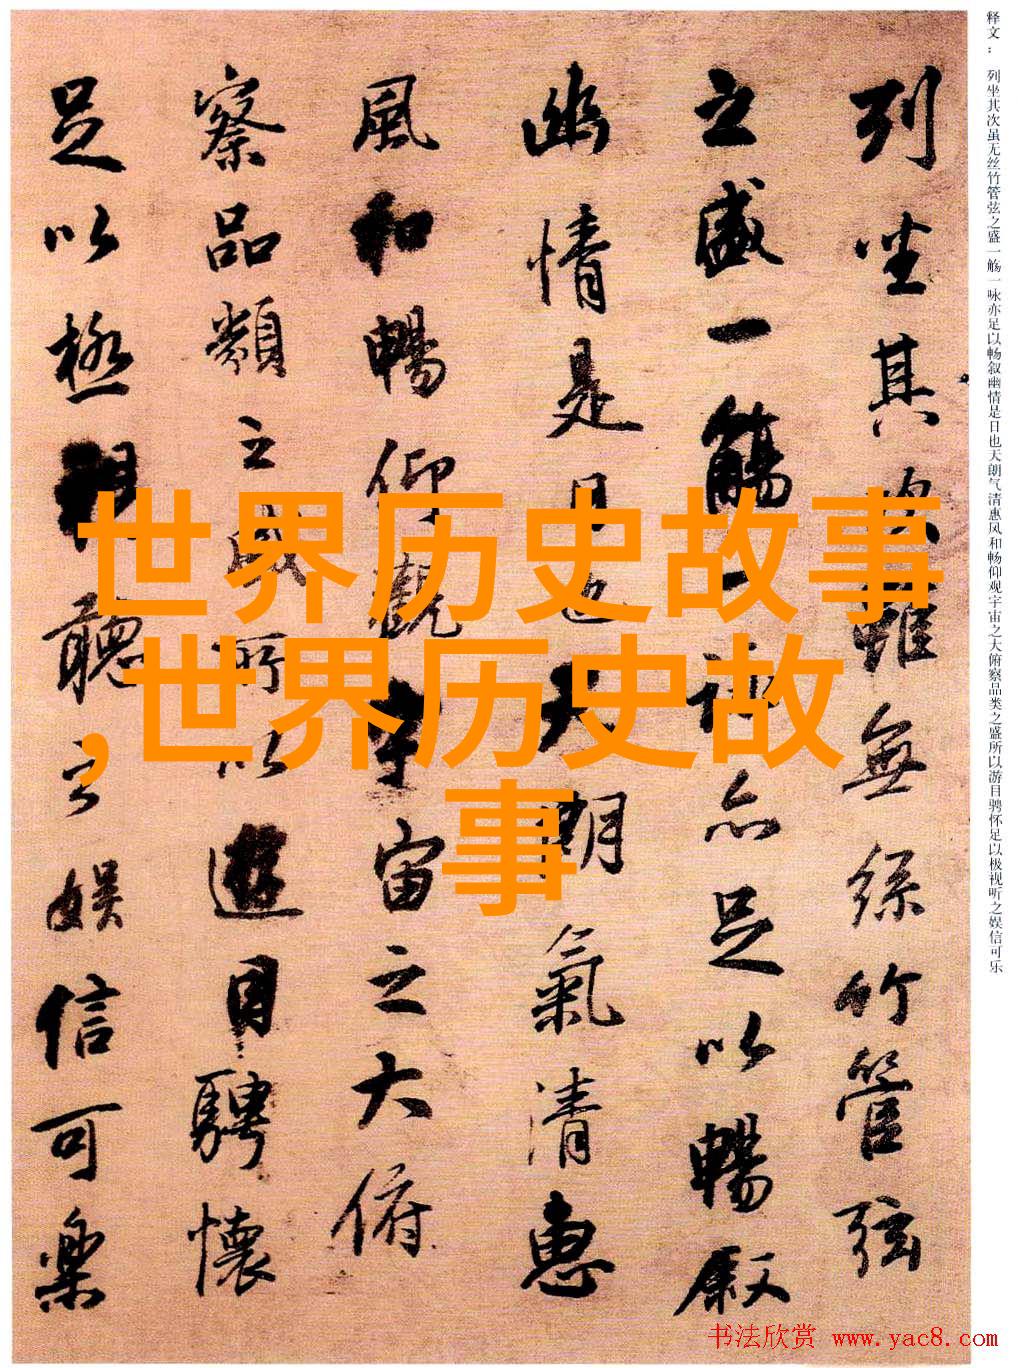 释文： 列坐其次虽无丝竹管弦之盛一觞一咏亦足以畅叙幽情是日也天朗气清惠风和畅仰观宇宙之大俯察品类之盛所以游目骋怀足以极视听之娱信可乐
列坐其次雖無絲竹管弦
之盛一觴一詠亦足以暢叙
幽情是日也天朗氣清惠
風和暢仰觀宇宙之大俯
察品類之盛所以遊目騁懷
足以極視聽之娛信可樂
世界历史故事
,世界历史故
事
书法欣赏 www.yac8.com